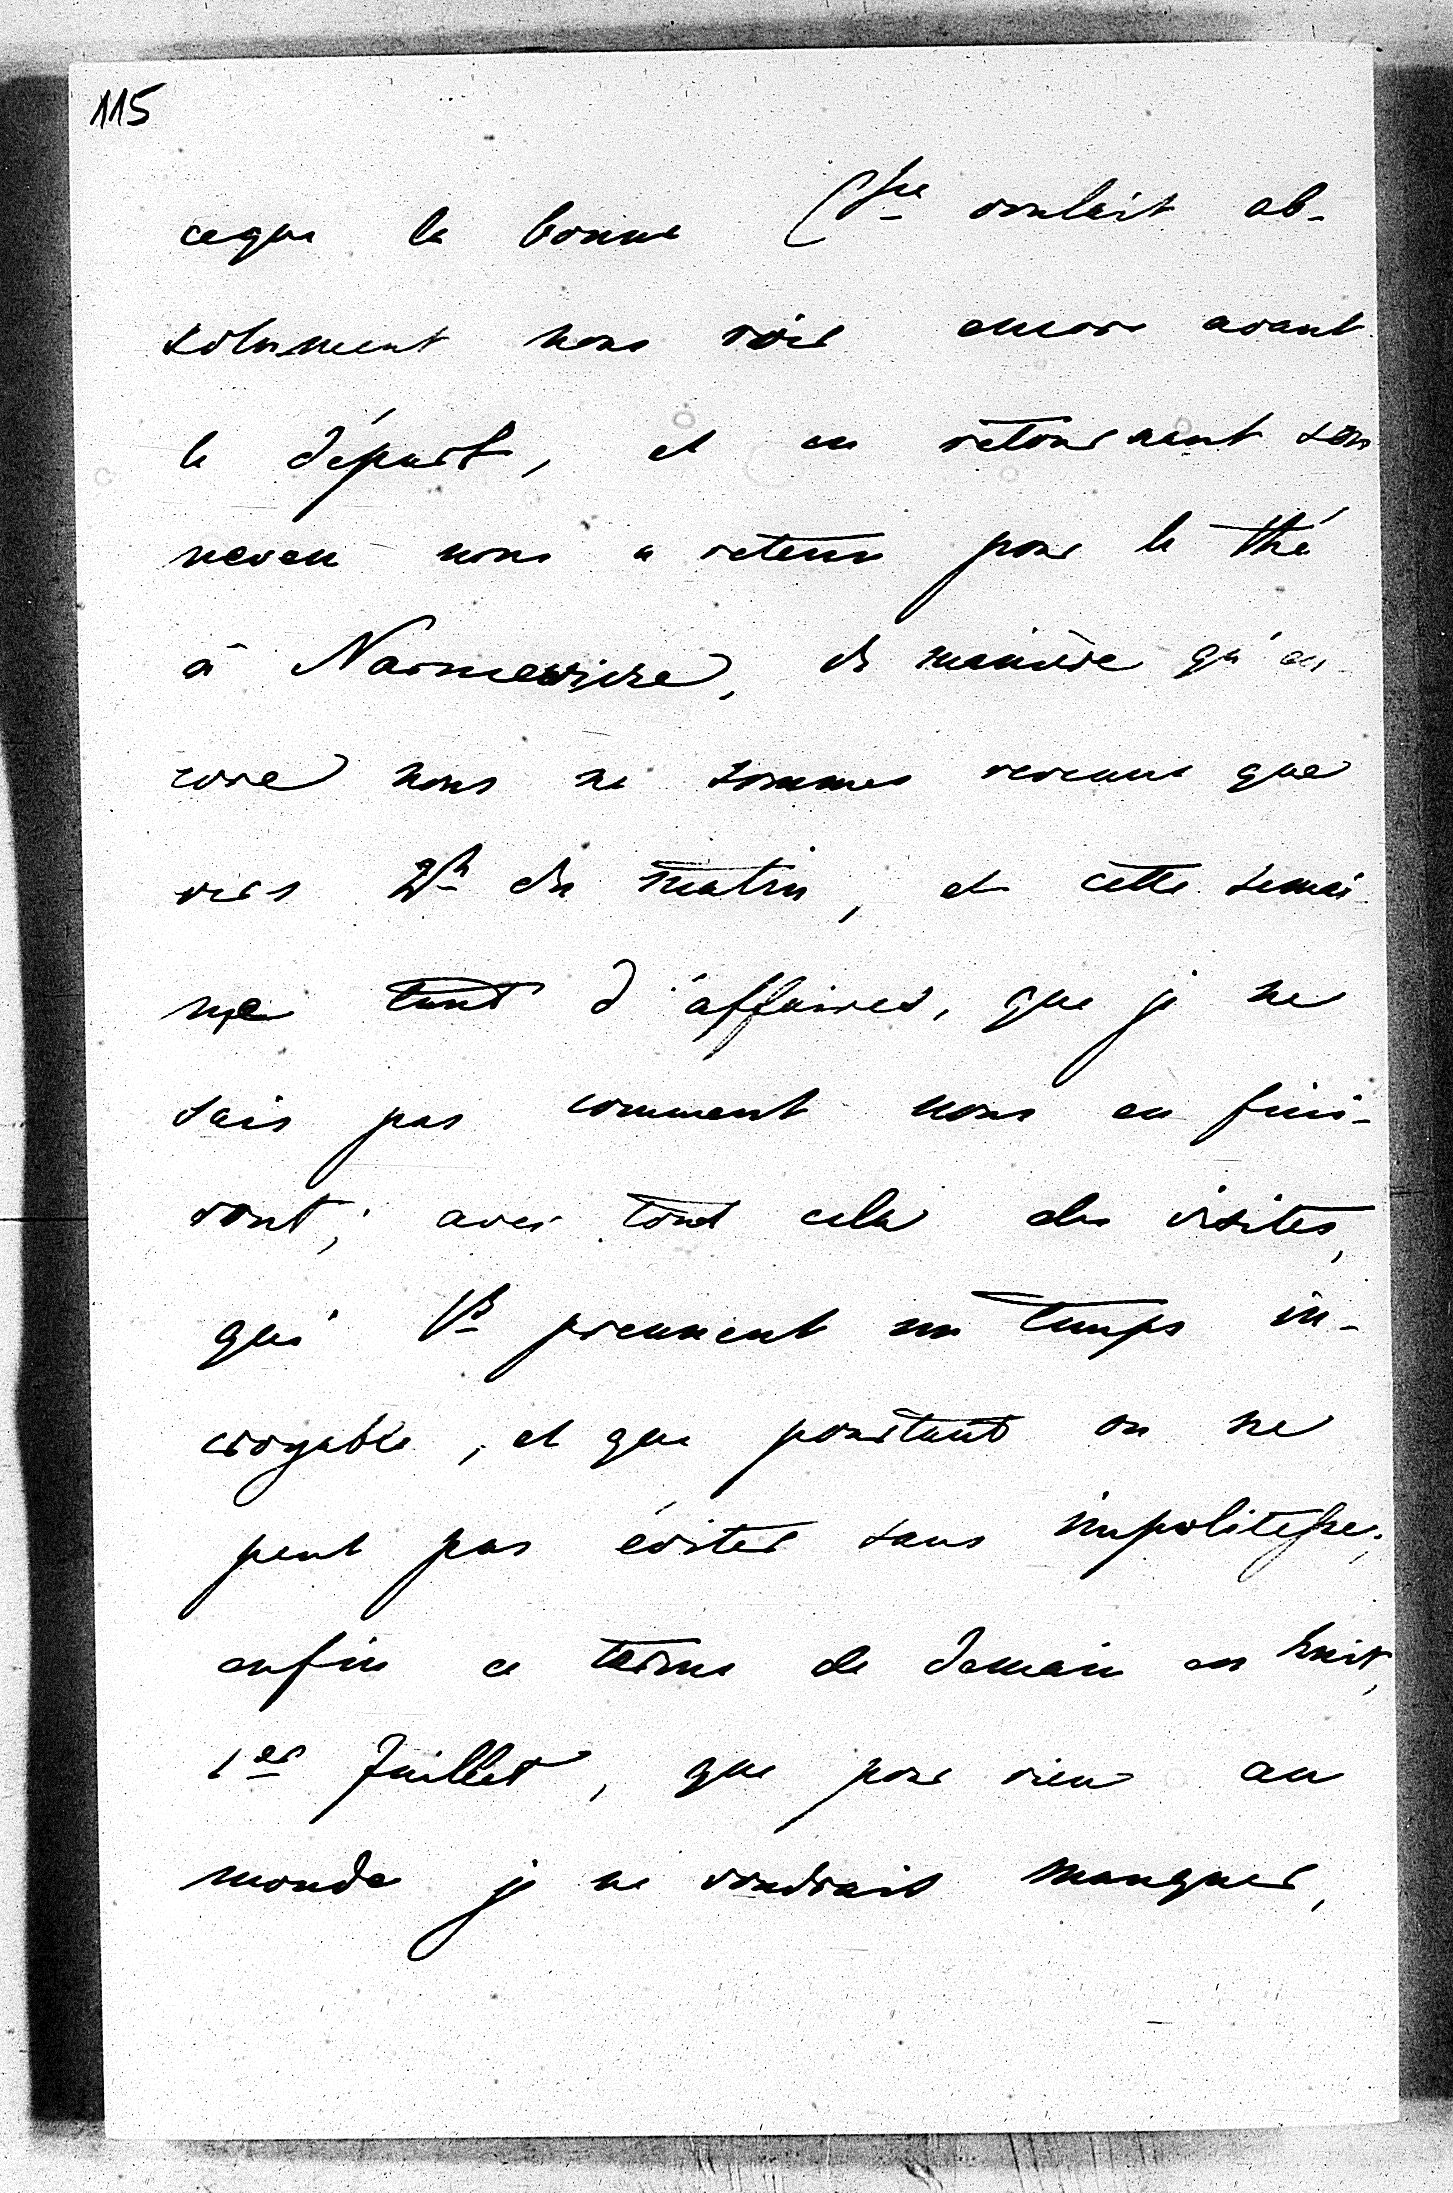 115
ceque la bonne Csse voulait ab-
solument nous voir encore avant
le départ, et en retournant son
neveu nous a retenu pour le thé
à, de manière qu'en-
core nous ne sommes revenus que
vers 2h du matin, et cette semai
ne tant d'affaires, que je ne
sais pas comment nous en fini-
ront; avec tout cela des visites,
qui Vs prennent un temps in-
croyable, et que pourtant on ne
peut pas éviter sans impolitesse;
enfin ce terme de demain en huit,
1er Juillet, que pour rien au
monde je ne voudrais manquer,